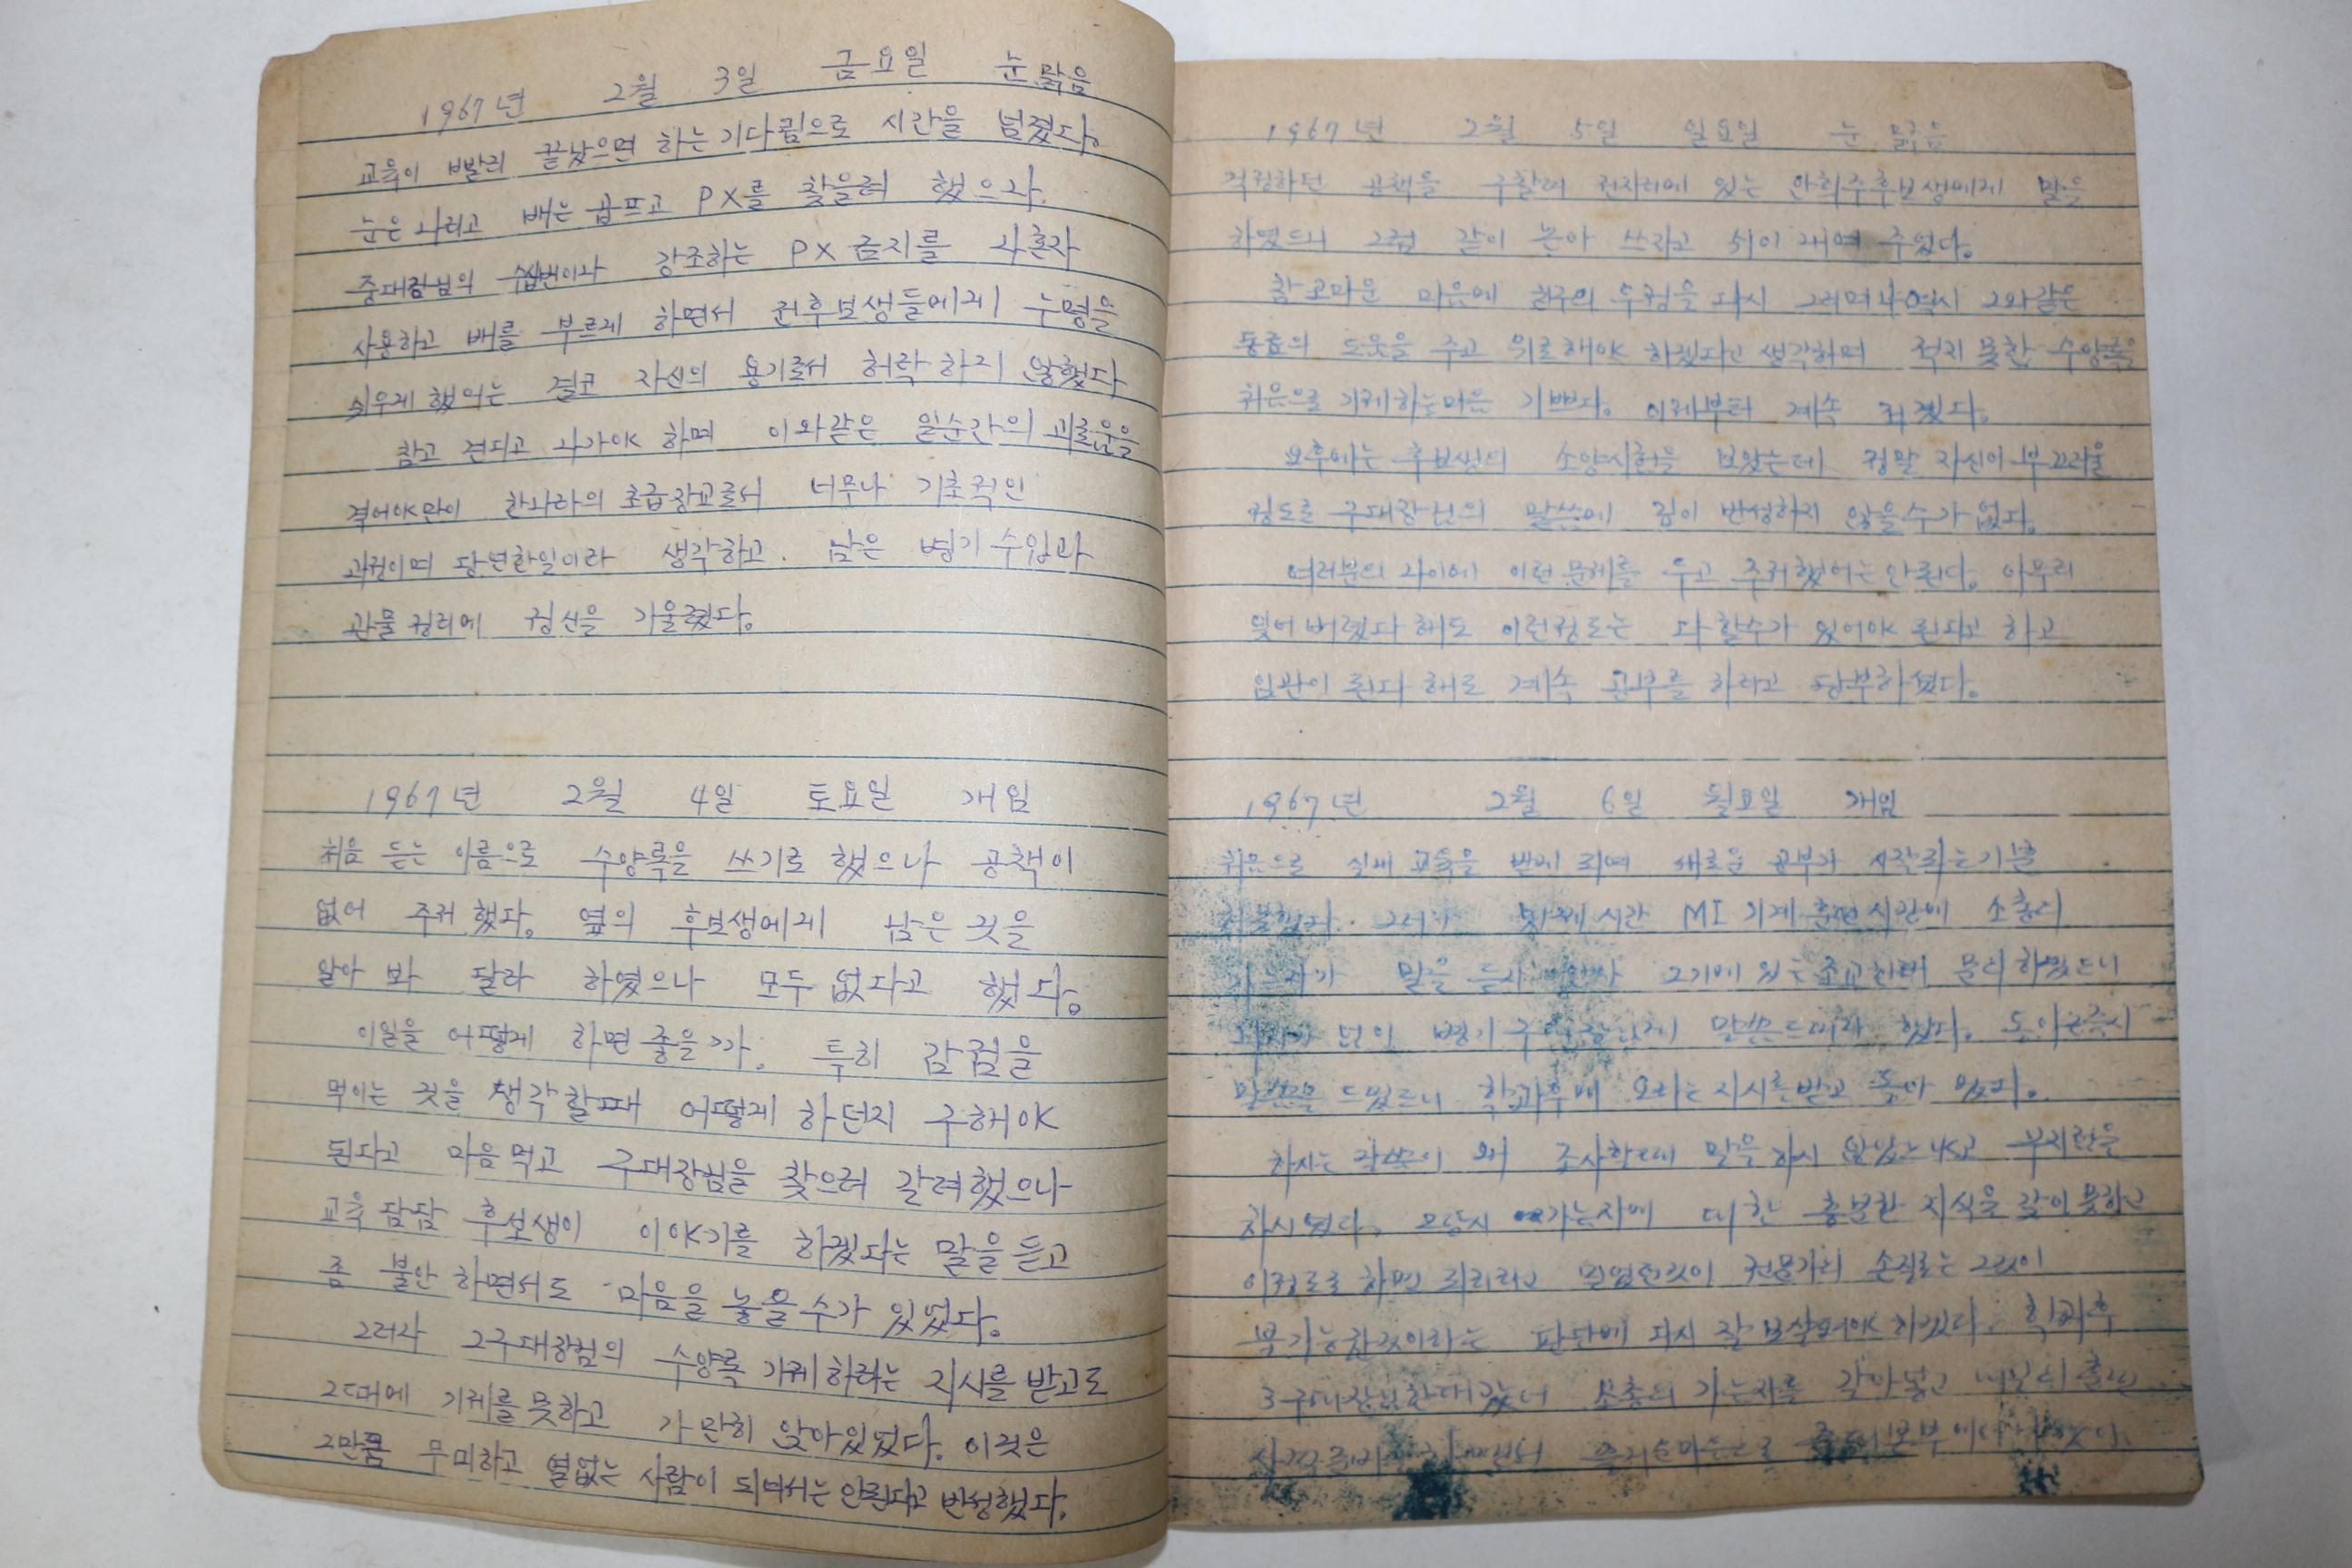 1967년 2월 3일 금요일 눈 맑음
교육이 빨리 끝났으면 하는 기다림으로 시간을 넘겼다.
눈은 나리고 배는 곱프고 PX를 찾을려 했으나.
중대장님의 수십번이나 강조하는 PX 금지를 나혼자
사용하고 배를 부르게 하면서 전후보생들에게 누명을
쒸우게 했어는 결코 자신의 용기로서 허락 하지 않했다
참고 견디고 나가야 하며 이와같은 일순간의 괴로움을
격어야만이 한나라의 초급장교로서 너무나 기초적인
과정이며 당년한일이라 생각하고. 남은 병기 수입과
관물 정리에 정신을 기울렸다.
1967년 2월 4일 토요일 개임
처음 듣는 이름으로 수양록을 쓰기로 했으나 공책이
없어 주저 했다. 옆의 후보생에게 남은 것을
알아 봐 달라 하였으나 모두 없다고 했다.
이일을 어떻게 하면 좋을까. 특히 감점을
먹이는 것을 생각할때 어떻게 하던지 구해야
된다고 마음먹고 구대장님을 찾으러 갈려했으나
교육 담당 후보생이 이야기를 하겠다는 말을 듣고
좀 불안 하면서도 마음을 놓을 수가 있었다.
그러나 2구대장님의 수양록 기제하라는 지시를 받고도
그때에 기제를 못하고 가만히 앉아있었다. 이것은
그만큼 무미하고 열없는 사람이 되여서는 안된다고 반성했다.
1967년 2월 5일 일요일 눈 맑음
걱정하던 공책을 구할며 전자리에 있는 안희주후보생에게 말을
하였드니 그럼 같이 논아 쓰자고 하여 주었다.
참 고마운 마음에 친구의 우정을 다시 그리며 나역시 그와같은
동료의 도웃을 주고 위로해야 하겠다고 생각하며 적지 못한 수양록을
처음으로 기제하는마음 기쁘다. 이제부터 계속 적겠다.
오후에는 후보생의 소양시험을 보았는데 정말 자신이 부끄러울
정도로 구대장님의 말씀에 깊이 반성하지 않을수가 없다.
여러분의 나이에 이런 문제를 두고 주저했어는 안된다. 아무리
잊어 버렸다 해도 이런정도는 다 할수가 있어야 된다고 하고
임관이 된다 해도 계속 공부를 하라고 당부하셨다.
1967년 2월 6일 월요일 개임
처음으로 실내 교육을 받게 되여 새로운 공부가 시작되는기분
시간 MI 기계훈련시간에 소총의
말을 듣자 그기에 있는 조교한테 문의 하였드니
병기 말씀드리라 했다. 돌아온즉시
말씀을 드렸드니 학과후에 오라는 지시를 받고 돌아 왔다.
하시는 말씀이 왜 조사할때 말을 하지 않았느냐고 꾸지람을
하시였다. 그당시 가늠자에 대한 충분한 지식을 갖이 못하고
이정도로 하면 되리라고 믿었던것이 전문가의 손직로는 그것이
부가능한것이라는 판단에 다시 잘 보살펴야 하겠다. 학과후
3구대장님한테 갔더니 소총의 가늠자를 갈아 넣고